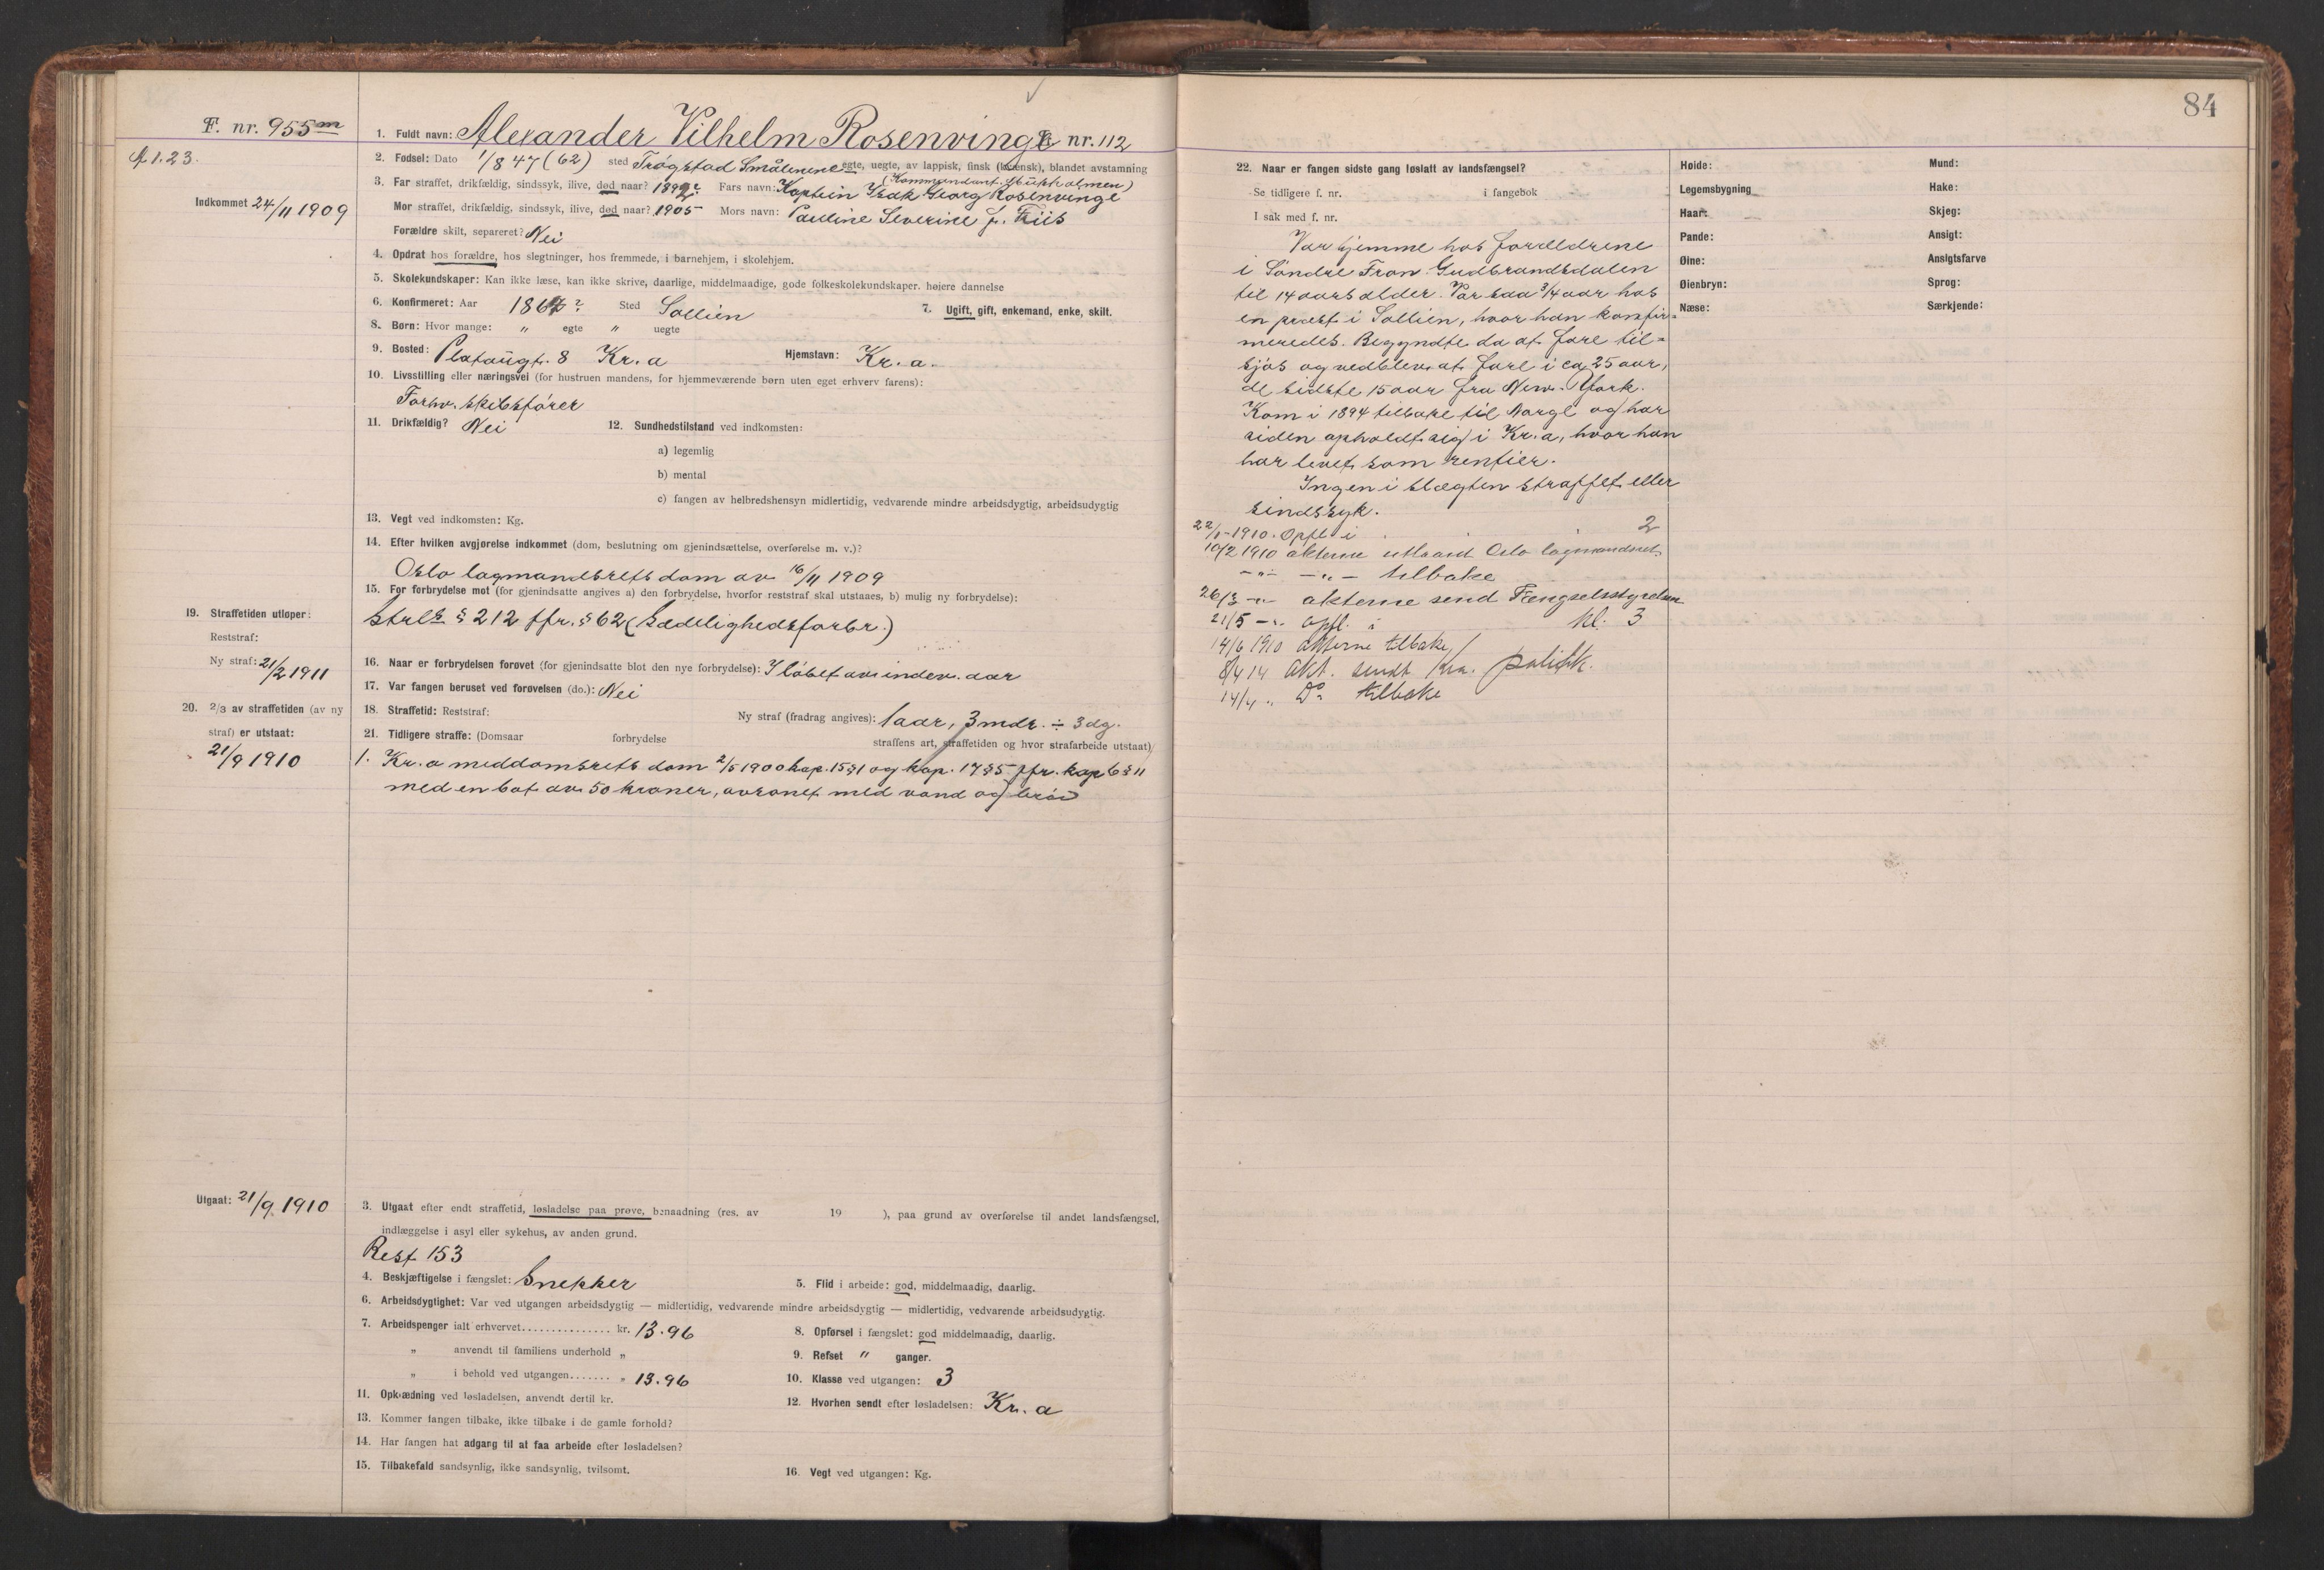 84
F. nr. 955 m
1. Fuldt navn: Alexander Vilhelm Rosenvinge nr. 112
A 1.23.
2. Fødsel: Dato 1/8 47 (62) sted Trøgstad Smålenene egte, uegte, av lappisk, finsk (kvensk), blandet avstamning
3. Far straffet, drikfældig, sindssyk, ilive, død naar? Fars navn: Kaptein Isak Georg Rosenvinge
Indkommet 24/11 1909
Mor straffet, drikfældig, sindssyk, ilive, død naar? 1905 Mors navn: Pauline Severine f. Friis
Forældre skilt, separeret? Nei
4. Opdrat hos forældre, hos slegtninger, hos fremmede, i barnehjem, i skolehjem.
5. Skolekundskaper: Kan ikke læse, kan ikke skrive, daarlige, middelmaadige, gode folkeskolekundskaper. høiere dannelse
6. Konfirmeret: Aar Sted Sollien 7. Ugift, gift, enkemand, enke, skilt.
8. Børn: Hvor mange: " egte " uegte
9. Bosted: 8 Kr.a Hjemstavn: Kr.a.
10. Livsstilling eller næringsvei (for hustruen mandens, for hjemmeværende børn uten eget erhverv farens):
Forhv. skibsfører
11. Drikfældig? Nei 12. Sundhedstilstand ved indkomsten:
a) legemlig
b) mental
c) fangen av helbredshensyn midlertidig, vedvarende mindre arbeidsdygtig, arbeidsudygtig
13. Vegt ved indkomsten: Kg.
14. Efter hvilken avgjørelse indkommet (dom, beslutning om gjenindsættelse, overførelse m. v.)?
Oslo lagmandsrets dom av 16/11 1909
15. For forbrydelse mot (for gjenindsatte angives a) den forbrydelse, hvorfor reststraf skal utstaaes, b) mulig ny forbrydelse):
19. Straffetiden utløper:
Strl's § 212 jfr. § 62 (Sædelighedsforbr.)
Reststraf:
Ny straf: 21/2 1911
16. Naar er forbrydelsen forøvet (for gjenindsatte blot den nye forbrydelse): I løbet av indev. aar
17. Var fangen beruset ved forøvelsen (do.): Nei
20. 2/3 av straffetiden (av ny straf) er utstaat:
18. Straffetid: Reststraf: Ny straf (fradrag angives): 1 aar, 3 mdr. ÷ 3 dg.
21. Tidligere straffe: (Domsaar forbrydelse straffens art, straffetiden og hvor strafarbeide utstaat)
21/9 1910
1. Kr.a meddomsrets dom 2/5 1900 kap. 15 § 1 og kap. 17 § 5 jfr. kap 6 § 11
med en bot av 50 kroner, avsonet med vand og brød
Utgaat: 21/9 1910
3. Utgaat efter endt straffetid, løsladelse paa prøve, benaadning (res. av 19 ), paa grund av overførelse til andet landsfængsel,
indlæggelse i asyl eller sykehus, av anden grund.
Rest 153
4. Beskjæftigelse i fængslet: Snekker 5. Flid i arbeide: god, middelmaadig, daarlig.
6. Arbeidsdygtighet: Var ved utgangen arbeidsdygtig — midlertidig, vedvarende mindre arbeidsdygtig — midlertidig, vedvarende arbeidsudygtig.
7. Arbeidspenger ialt erhvervet............... kr. 13.96 8. Opførsel i fængslet: god middelmaadig, daarlig.
" anvendt til familiens underhold " 9. Refset " ganger.
" i behold ved utgangen....... " 13.96 10. Klasse ved utgangen: 3
11. Opklædning ved løsladelsen, anvendt dertil kr. 12. Hvorhen sendt efter løsladelsen: Kr.a
13. Kommer fangen tilbake, ikke tilbake i de gamle forhold?
14. Har fangen hat adgang til at faa arbeide efter løsladelsen?
15. Tilbakefald sandsynlig, ikke sandsynlig, tvilsomt. 16. Vegt ved utgangen: Kg.
22. Naar er fangen sidste gang løslatt av landsfængsel?
Se tidligere f. nr. i fangebok
I sak med f. nr.
Var hjemme hos forældrene
i Søndre Fron Gudbrandsdalen
til 14 aars alder. Var saa 3/4 aar hos
en prest i Sollien, hvor han konfir=
meredes. Begyndte da at fare til=
sjøs og vedblev at fare i ca 25 aar,
de sidste 15 aar fra New-York.
Kom i 1894 tilbake til Norge og har
siden opholdt sig i Kr.a, hvor han
har levet som rentier.
Ingen i slægten straffet eller
sindssyk.
22/1-1910. Opfl i 2
10/2 1910 akterne utlaant Oslo lagmandsret.
-"- -"- tilbake
26/3 -"- akterne send Fængselsstyrelsen
21/5 -"- opfl. i kl. 3
14/6 1910 akterne tilbake
8/4 14 akt. sendt Kra. politik.
14/4 " Do tilbake
Høide: Mund:
Legemsbygning Hake:
Haar: Skjeg:
Pande: Ansigt:
Øine: Ansigtsfarve
Øienbryn: Sprog:
Næse: Særkjende: